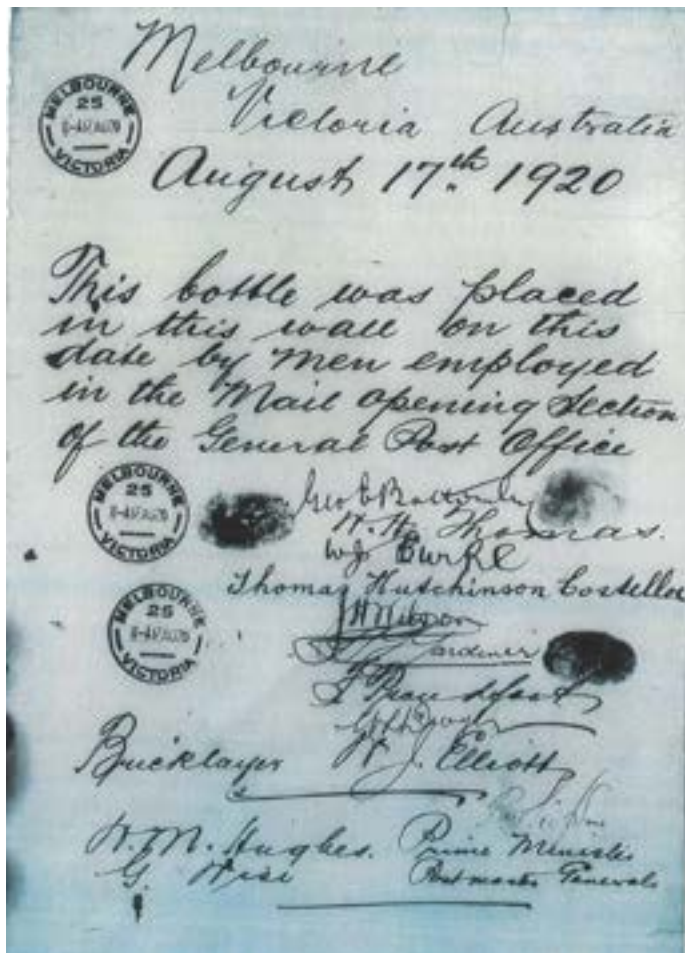 Melbourne
Victoria Australia
August 17th. 1920
MELBOURNE
25
VICTORIA
This bottle was placed
in this wall on this
date by men employed
in the Mail Opening Section
of the General Post Office
MELBOURNE
25
VICTORIA
W. H. Thomas.
W. J. Burke
Thomas Hutchinson Costelloe
MELBOURNE
25
VICTORIA
Gardiner
Bricklayer W. J. Elliott
W. M. Hughes. Prime Minister
G. Wise Postmaster General